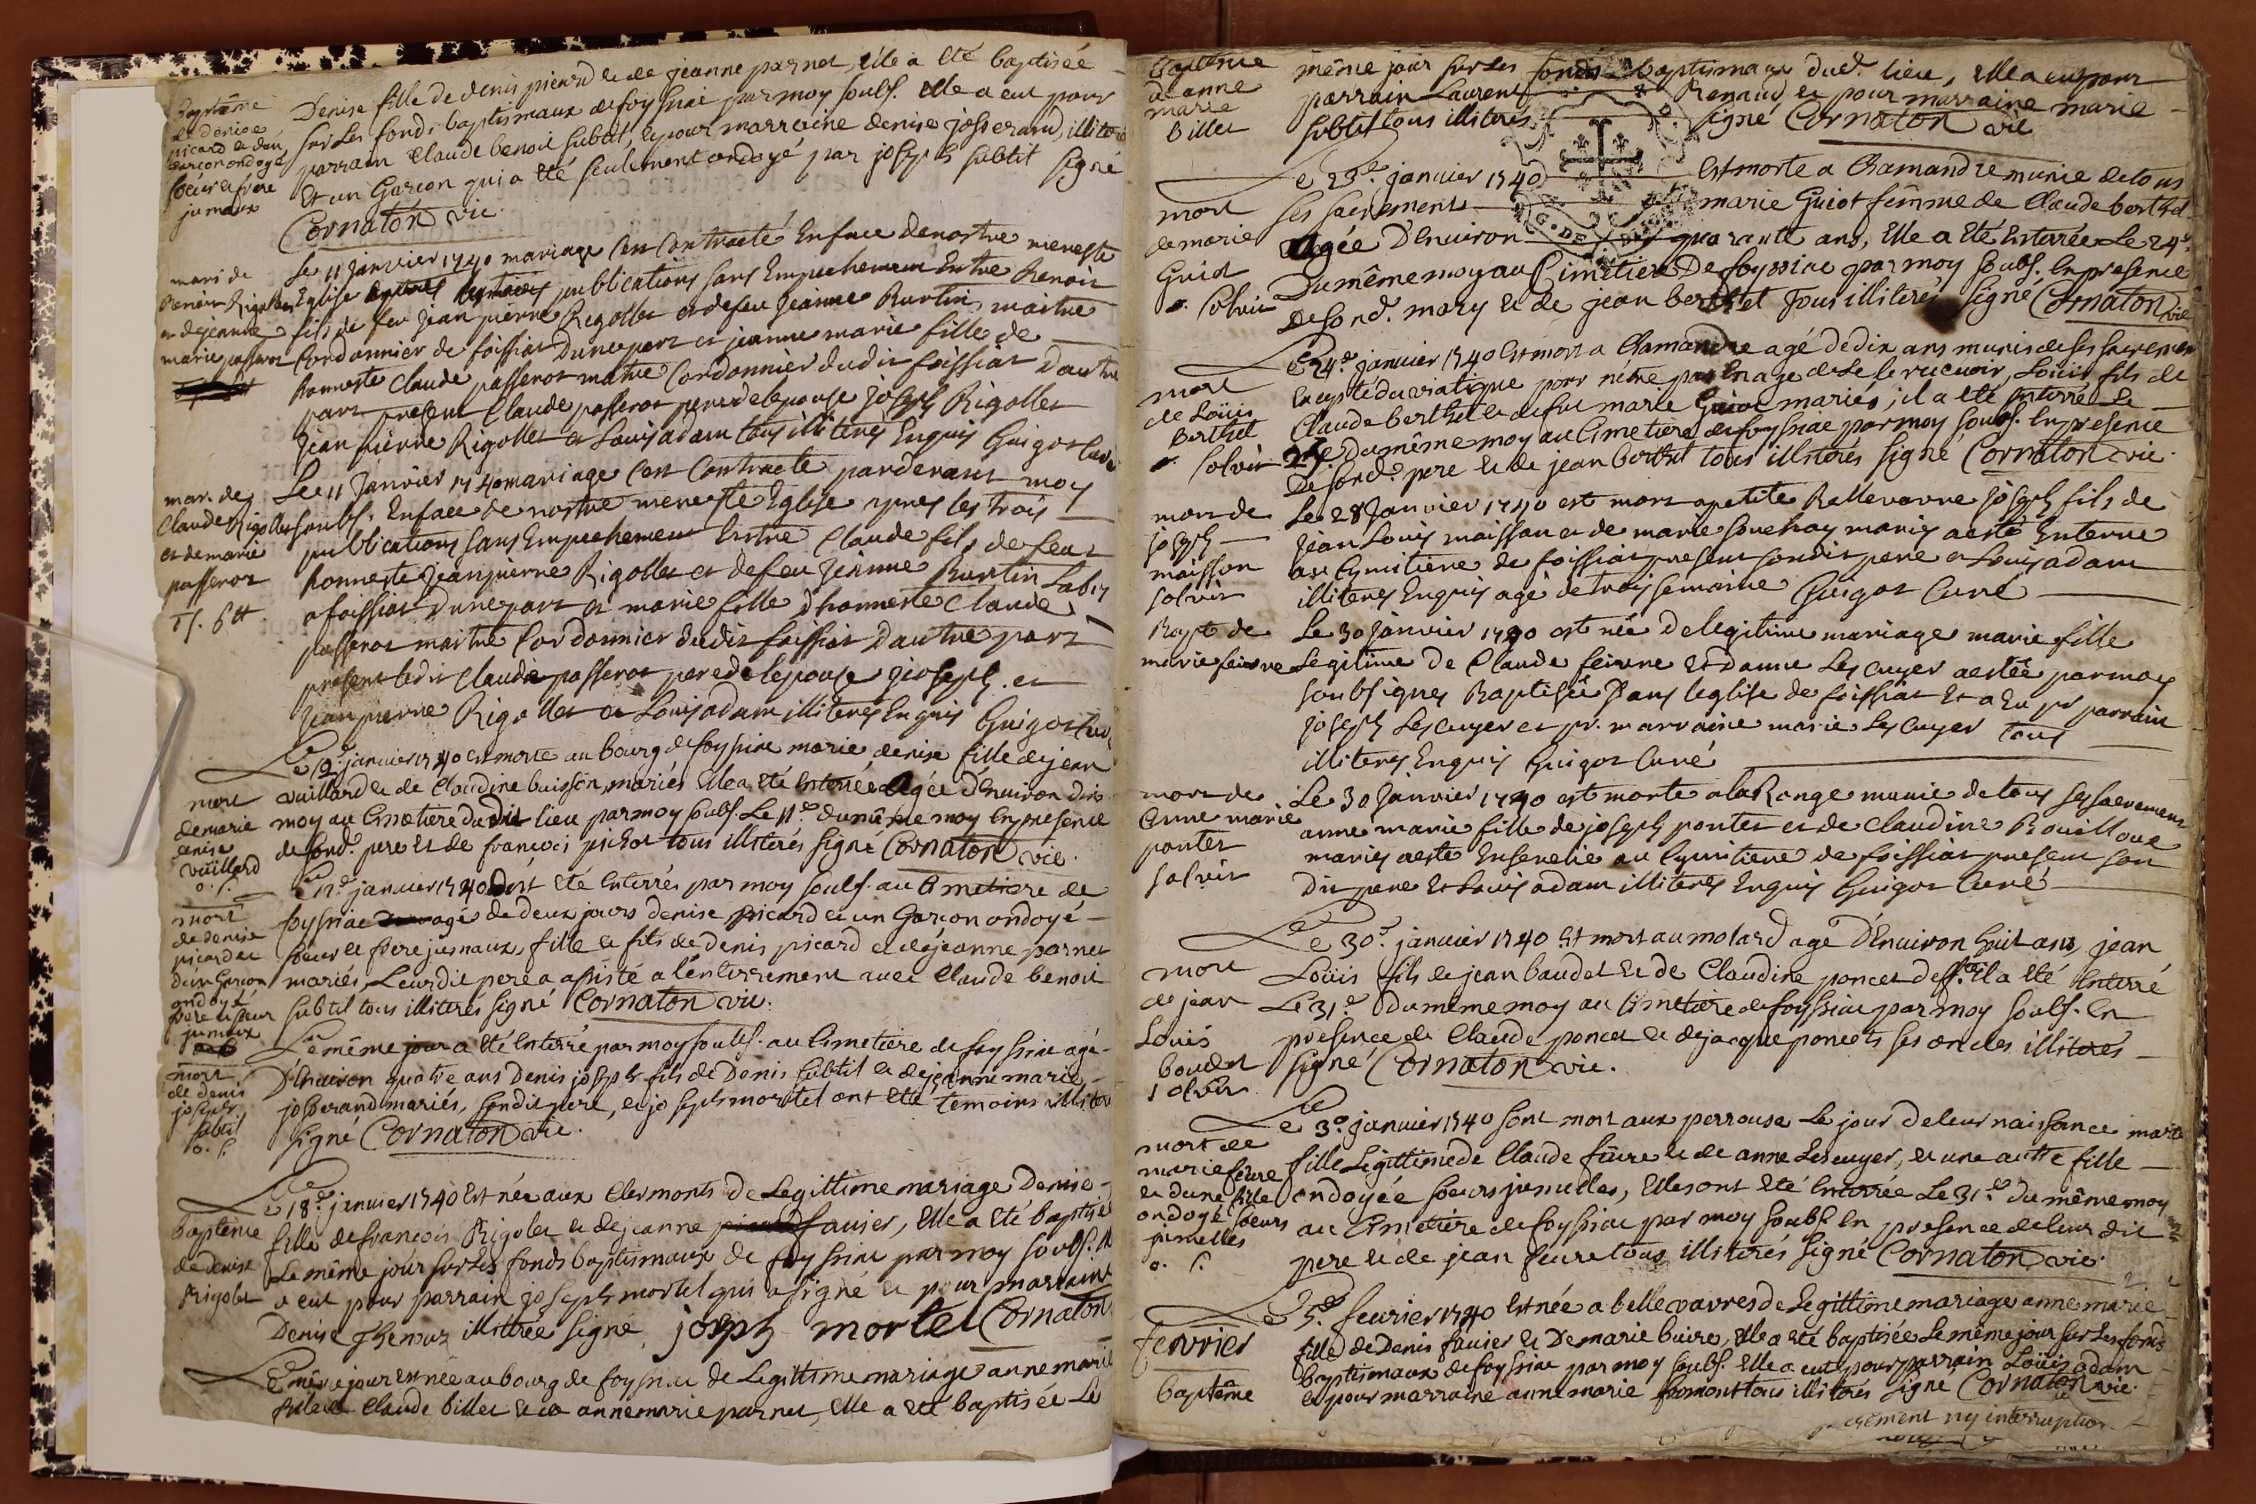 Baptême
de denise
picard et d'un
garçon ondoyé
sœur et frere
jumeaux
Denise fille de denis picard et de jeanne parnet, elle a eté baptisée
sur les fonds baptismaux de foyssiac par moy soubs. elle a eut pour
parrain Claude benoit subtil, et pour marraine denise josserand, illiterés
Et un Garçon qui a eté seulement ondoyé par joseph subtil signé
Cornaton vic.
mari. de
Benoit Rigollet
et de jeanne
marie passerot
Le 11 janvier 1740 mariage a esté Contracté En face de nostre mere ste
Eglise apres publications sans Empechement Entre Benoit
fils de feu Jean pierre Rigollet et de feu Jeanne Burtin, maitre
Cordonnier de foissiat d'une part et jeanne marie fille de
honneste Claude passerot maitre Cordonnier dudit foissiat d'autre
part present Claude passerot pere de lepouse joseph Rigollet
Jean pierre Rigollet et Louis adam tous illiterés Enquis Guigot Curé
mar. de
Claude Rigollet
et de marie
passerot
Le 11 Janvier 1740 mariage a esté Contracté pardevant moy
soubs. En face de nostre mere ste Eglise apres les trois
publications sans Empechement Entre Claude fils de feut
honneste Jean pierre Rigollet et de feu Jeanne Burtin
a foissiat d'une part et marie fille d'honneste Claude
passerot maitre Cordonnier dudit foissiat d'autre part
present ledit Claude passerot pere de lepouse joseph et
Jean pierre Rigollet et Louis adam illiterés Enquis Guigot Curé
mort
de marie
denise
vuillard
o. s.
Le 12e janvier 1740 est morte au bourg de foyssiac marie denise fille de jean
vuillard et de Claudine buisson, mariés Elle a eté Enterrée Agée d'Environ dix
moy au Cimetiere dudit lieu par moy soubs. Le 11e du même moy En presence
de sond. pere Et de françois pichot tous illiterés signé Cornaton vic.
mort
de denise
picard et
d'un Garçon
ondoyé
frere et sœur
jumeaux
Le 12e janvier 1740 ont eté Enterrés par moy soubs. au Cimetiere de
foyssiac agés de deux jours denise picard et un Garçon ondoyé
sœur et frere jumeaux, fille et fils de Denis picard et de jeanne parnet
mariés, Leurdit pere a assisté a l'enterrement avec Claude benoit
subtil tous illiterés signé Cornaton vic.
mort
de denis
joseph
subtil
o. s.
Le même jour a eté Enterré par moy soubs. au Cimetiere de foyssiac agé
d'Environ quatre ans Denis joseph fils de Denis subtil et de jeanne marie
josserand mariés, sondit pere, et joseph mortel ont eté temoins illiterés
signé Cornaton vic.
baptême
de denise
Rigolet
Le 18e janvier 1740 Est née aux Clermonts de Legittime mariage Denise
fille de françois Rigolet et de jeanne favier, elle a eté baptisée
Le même jour sur les fonds baptismaux de foyssiac par moy soubs. elle
a eut pour parrain joseph mortel qui a signé et pour marraine
Denise illiterée signé joseph mortel Cornaton
Le même jour est née au bourg de foyssiac de Legittime mariage anne marie
fille de Claude billet et de anne marie parnet, elle a eté baptisée Le
baptême
d'anne
marie
billet
même jour sur les fonds baptismaux dud. lieu, elle a eut pour
parrain Laurent Renaud et pour marraine marie
subtil tous illiterés signé Cornaton vic
G. DE
mort
de marie
Guiot
solvit
Le 23e janvier 1740 Est morte a Chamandre munie de tous
ses sacrements marie Guiot femme de Claude berthet
Agée d'Environ quarante ans, elle a eté Enterrée Le 24e
Du même moy au Cimetiere De foyssiac par moy soubs. En presence
de sond. mary et de jean berthet Tous illiterés signé Cornaton vic
mort
de Loüis
Berthet
solvit
Le 24e janvier 1740 Est mort a Chamandre agé de dix ans munis de ses sacremens
Excepté du viatique pour n'etre pas En age de le recevoir, Loüis fils de
Claude berthet et de fut marie Guiot mariés, il a eté Enterré Le
25e du même moy au Cimetiere de foyssiac par moy soubs. En presence
De sond. pere et de jean berthet tous illiterés signé Cornaton vic.
mort de
joseph
maisson
solvit
Le 28 Janvier 1740 est mort a petite Bellevavre joseph fils de
Jean Louis maisson et de marie souchay mariés a esté Enterré
au Cymitiere de foissiat present sondit pere et Louis adam
illiterés Enquis agé de trois semaine Guigot Curé
Bapt. de
marie feivre
Le 30 Janvier 1740 est née de legitime mariage marie fille
Legitime de Claude feivre Et d'anne Lescuyer a estée par moy
soubsigné Baptisée dans leglise de foissiat Et a Eu pr parrain
joseph Lescuyer et pr. marraine marie Lescuyer tous
illiterés Enquis Guigot Curé
mort de
Anne marie
pontet
solvit
Le 30 Janvier 1740 est morte a la Ronge munie de tous ses sacremens
anne marie fille de joseph pontet et de Claudine Bouilloux
mariés a esté Ensevelie au Cymitiere de foissiat present son
dit pere Et Louis adam illiterés Enquis Guigot Curé
mort
de jean
Loüis
boudet
solvit
Le 30e janvier 1740 Est mort au molard agé d'Environ huit ans, jean
Loüis fils de jean baudet et de Claudine poncet deff. il a eté Enterré
Le 31e du même moy au Cimetiere de foyssiac par moy soubs. En
presence de Claude poncet et de jacque poncets ses oncles illiterés
signé Cornaton vic.
mort de
marie feivre
et d'une fille
ondoyé sœurs
jumelles
o. s.
Le 3e janvier 1740 sont mort aux perrouse Le jour de leur naissance marie
fille Legittime de Claude feivre et de anne Lescuyer, et une autre fille
ondoyée sœurs jumelles, elles ont eté Enterrée Le 31e du même moy
au Cimetiere de foyssiac par moy soubs. En presence de leur dit
pere et de jean feivre tous illiterés signé Cornaton vic.
fevrier
baptême
Le 5e fevrier 1740 Est née a bellevavres de Legittime mariage anne marie
fille de Denis favier et De marie buire, elle a eté baptisée Le même jour sur les fonds
baptismaux de foyssiac par moy soubs. elle a eut pour parrain Loüis adam
et pour marraine anne marie fromont tous illiterés signé Cornaton vic.
ny interruption